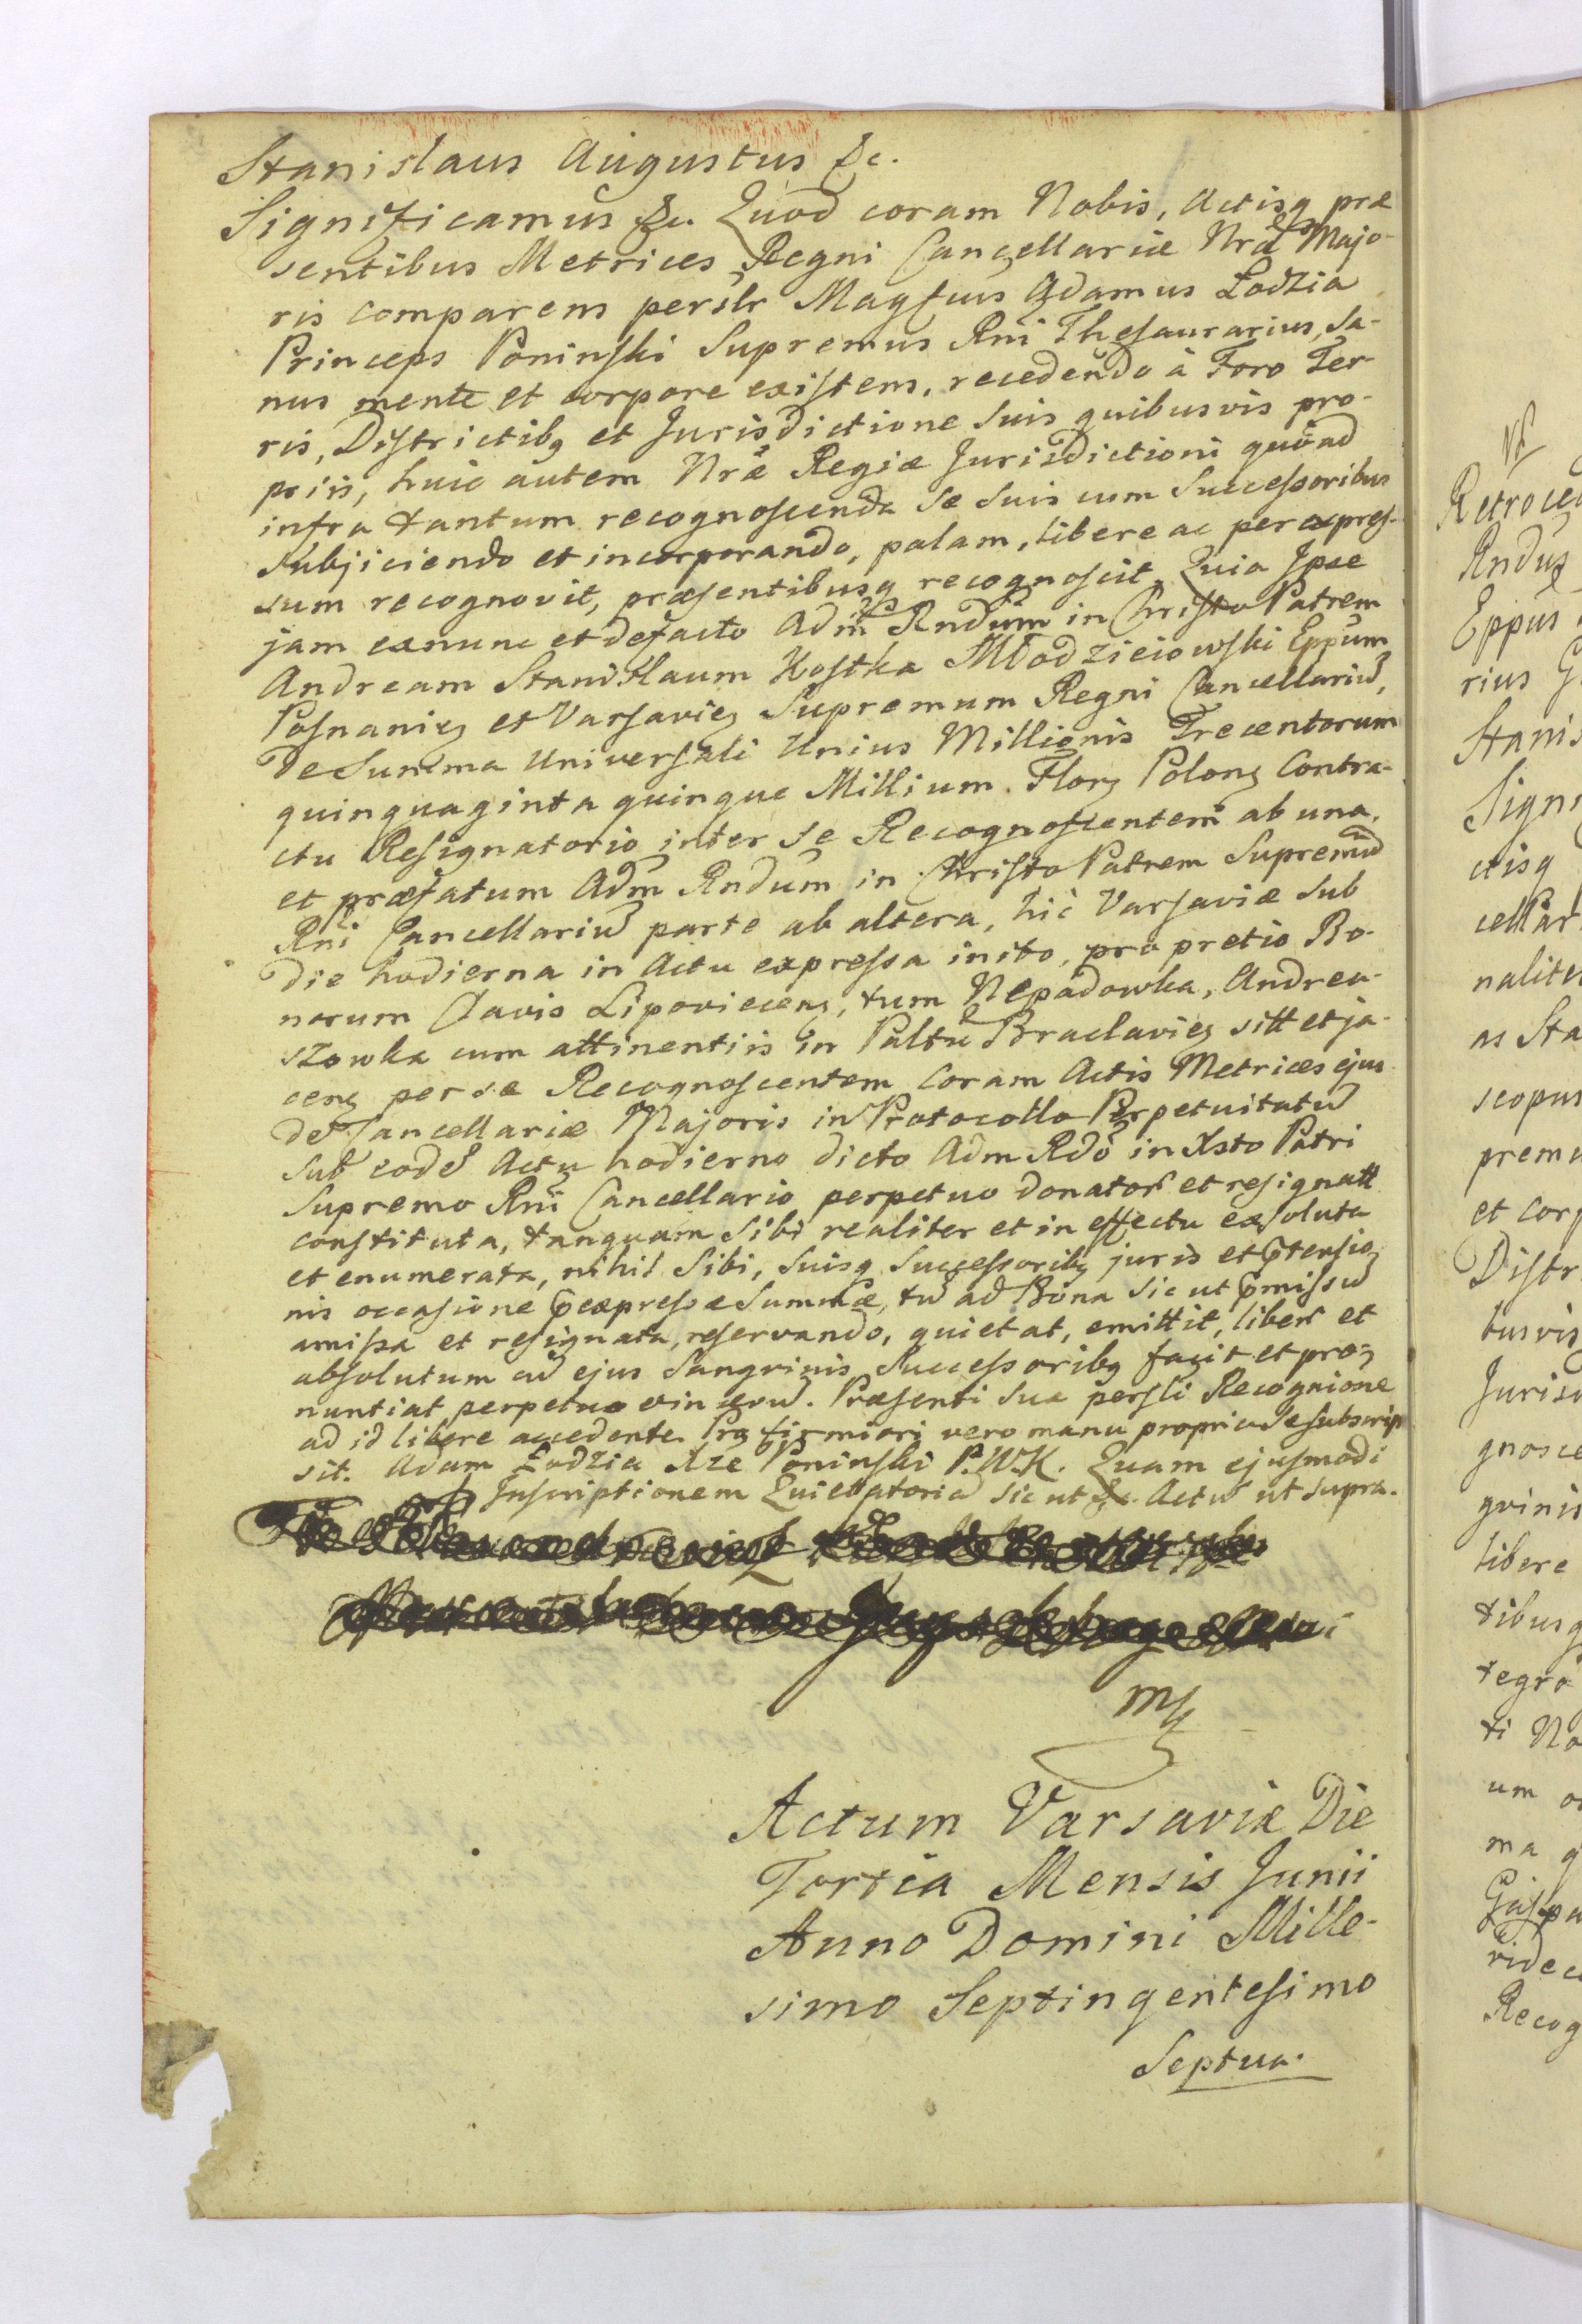 Stanislaus Augustus &c.
Significamus &c. Quod coram Nobis, Actisq præ
sentibus Metrices Regni Cancellariæ Nræ Majo-
ris comparens persłr Magfcus Adamus Łodzia
Princeps Poninski Supremus Rni Thesaurarius, Sa-
nus mente et corpore existens, recedendo à Foro Ter-
ris, Districtibq et Jurisdictione Suis quibusvis pro-
priis, huic autem Nræ Regiæ Jurisdictioni quoad
infra tantum recognoscenda se suis cum Successoribus
subjiciendo et incorporando, palam, libere ac per expres-
sum recognovit, præsentibusq recognoscit. Quia Ipse
jam exnunc et defacto Adm Rndum in Christo Patrem
Andream Stanislaum Kostka Młodzieiowski Eppum
Posnanieg et Varsavieg Supremum Regni Cancellariu,
De Summa Universali Unius Millionis Trecentorum
quinquaginta quinque Millium Florg Polong Contra-
ctu Resignatorio inter se Recognoscentem ab una,
et præfatum Adm Rndum in Christo Patrem Supremu
Rni Cancellariu parte ab altera, hic Varsaviæ sub
die hodierna in Actu expressa inito, pro pretio Bo-
norum Clavis Lipoviecensg, tum Nepadowka, Andrea-
szowka cum attinentiis in Paltu Braclavieg sitt et ja-
ceng per se Recognoscentem Coram Actis Metrices ejus
de Cancellariæ Majoris in Protocollo Perpetuitatu
sub eode Actu hodierno dicto Adm Rdo in Xsto Patri
Supremo Rni Cancellario perpetuo donator et resignatt
constituta, tanquam sibi realiter et in effectu exsoluta
et enumerata, nihil Sibi, suisq Successoribq juris et ptensio
nis occasione pexpressæ Summæ, tu ad Bona sic ut pmissu
amissa et resignata, reservando, quietat, emittit, liber et
absolutum cu ejus Sangvinis Successoribq facit et pro
nuntiat perpetuo evin ævu. Præsenti sua persłi Recognione
ad id libere accedente. Pro firmiori vero manu propria se subscrip
sit. Adam Łodzia Xze Poninski P.W.K. Quam ejusmodi
Inscriptionem Quiettatoria sic ut &c. Actu ut supra.
mp
Actum Varsaviæ Die
Tertia Mensis Junii
Anno Domini Mille-
simo Septingentesimo
Septua.
Retroces
Rndus
Eppus
rius G
Stanis
Signi
ctisq
cellar
nalite
as Sta
scopus
premu
et corp
Distr
busvis
Jurisd
gnosce
gvinis
libere
tibusq
tegro
ti No
um o
ma q
Gaspa
videc
Recog